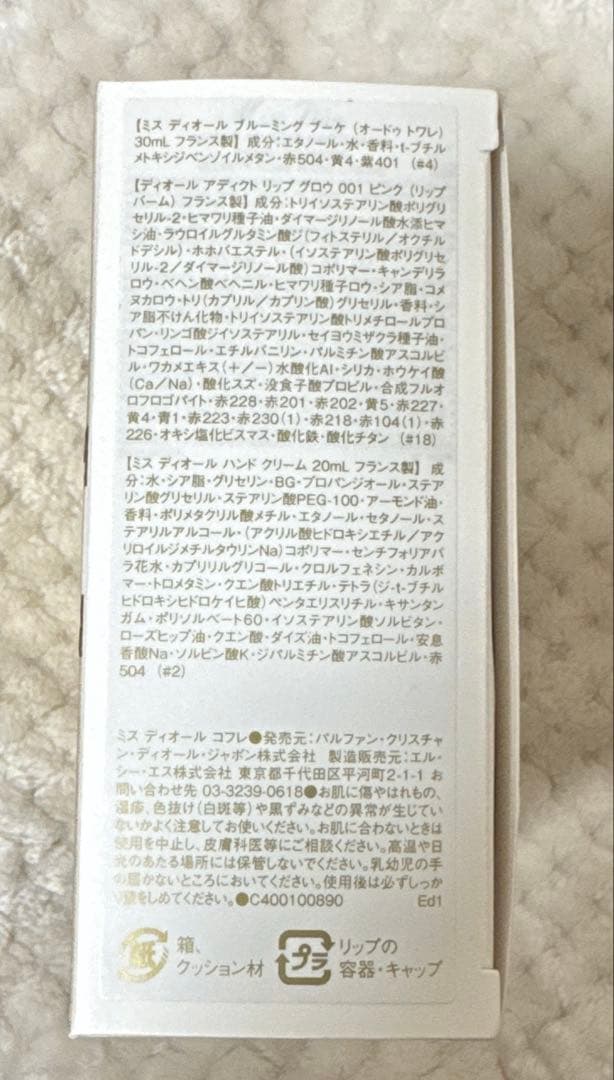 【ミス ディオール ブルーミング ブーケ (オードゥ トワレ)
30mL フランス製】 成分:エタノール・水・香料・t-ブチル
メトキシジベンゾイルメタン・赤504・黄4・紫401 (#4)
【ディオール アディクト リップ グロウ 001 ピンク (リップ
バーム) フランス製】 成分:トリイソステアリン酸ポリグリ
セリル-2・ヒマワリ種子油・ダイマージリノール酸水添ヒマ
シ油・ラウロイルグルタミン酸ジ(フィトステリル/オクチル
ドデシル)・ホホバエステル・(イソステアリン酸ポリグリセ
リル-2/ダイマージリノール酸)コポリマー・キャンデリラ
ロウ・ベヘン酸ベヘニル・ヒマワリ種子ロウ・シア脂・コメ
ヌカロウ・トリ(カプリル/カプリン酸)グリセリル・香料・シ
ア脂不けん化物・トリイソステアリン酸トリメチロールプロ
パン・リンゴ酸ジイソステアリル・セイヨウミザクラ種子油・
トコフェロール・エチルバニリン・パルミチン酸アスコルビ
ル・ワカメエキス(+/-)水酸化Al・シリカ・ホウケイ酸
(Ca/Na)・酸化スズ・没食子酸プロピル・合成フルオ
ロフロゴパイト・赤228・赤201・赤202・黄5・赤227・
黄4・青1・赤223・赤230(1)・赤218・赤104(1)・赤
226・オキシ塩化ビスマス・酸化鉄・酸化チタン (#18)
【ミス ディオール ハンド クリーム 20mL フランス製】 成
分:水・シア脂・グリセリン・BG・プロパンジオール・ステア
リン酸グリセリル・ステアリン酸PEG-100・アーモンド油・
香料・ポリメタクリル酸メチル・エタノール・セタノール・ス
テアリルアルコール・(アクリル酸ヒドロキシエチル/アク
リロイルジメチルタウリンNa)コポリマー・センチフォリアバ
ラ花水・カプリリルグリコール・クロルフェネシン・カルボ
マー・トロメタミン・クエン酸トリエチル・テトラ(ジ-t-ブチル
ヒドロキシヒドロケイヒ酸)ペンタエリスリチル・キサンタン
ガム・ポリソルベート60・イソステアリン酸ソルビタン・
ローズヒップ油・クエン酸・ダイズ油・トコフェロール・安息
香酸Na・ソルビン酸K・ジパルミチン酸アスコルビル・赤
504 (#2)
ミス ディオール コフレ●発売元:パルファン・クリスチャ
ン・ディオール・ジャポン株式会社 製造販売元:エル・
シー・エス株式会社 東京都千代田区平河町2-1-1 お
問い合わせ先 03-3239-0618●お肌に傷やはれもの、
湿疹、色抜け(白斑等)や黒ずみなどの異常が生じてい
ないかよく注意してお使いください。お肌に合わないときは
使用を中止し、皮膚科医等にご相談ください。高温や日
光のあたる場所には保管しないでください。乳幼児の手
の届かないところにおいてください。使用後は必ずしっか
り蓋をしめてください。●C400100890 Ed1
紙 箱、
クッション材
プラ リップの
容器・キャップ